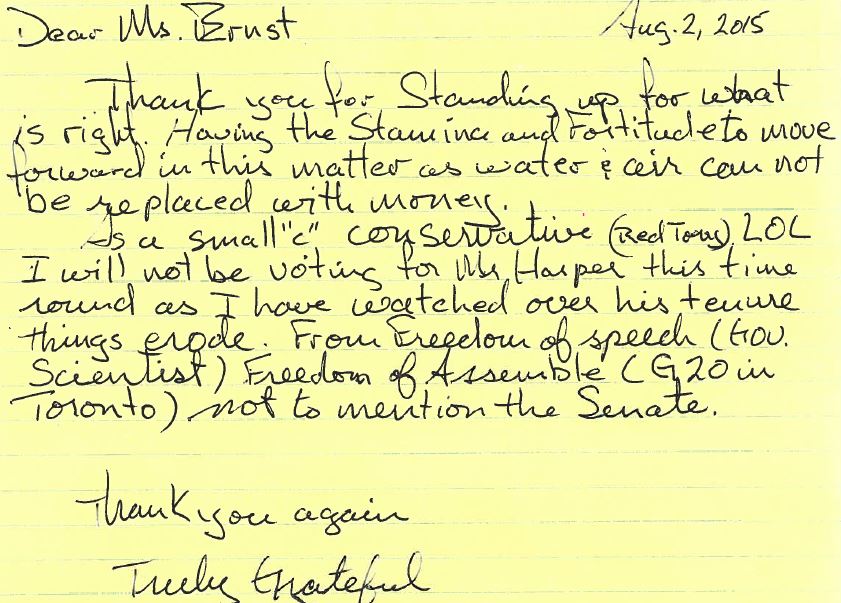 Dear Ms. Ernst Aug. 2, 2015
Thank you for Standing up for what
is right. Having the Stamina and Fortitude to move
forward in this matter as water & air can not
be replaced with money.
As a small "c" conservative (Red Tory) LOL
I will not be voting for Mr Harper this time
round as I have watched over his tenure
things erode. From Freedom of speech (Gov.
Scientist) Freedom of Assemble (G20 in
Toronto) not to mention the Senate.
Thank you again
Truly Grateful